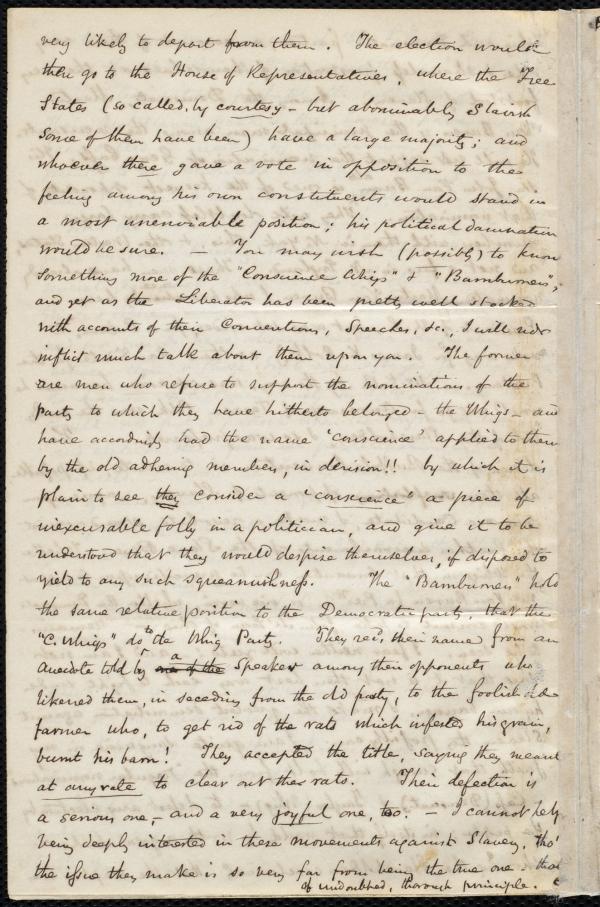 very likely to depart from them. The election would
then go to the House of Representatives, where the Free
States (so called, by courtesy - but abominably Slavish
some of them have been) have a large majority; and
whoever there gave a vote in opposition to the
feeling among his own constituents would stand in
a most unenviable position; his political damnation
would be sure. — You may wish (possibly) to know
something more of the "Conscience Whigs" & "Barnburners";
and yet as the Liberator has been pretty well stocked
with accounts of their Conventions, Speeches, &c., I will not
inflict much talk about them upon you. The former
are men who refuse to support the nominations of the
party to which they have hitherto belonged - the Whigs - and
have accordingly had the name 'conscience' applied to them
by the old adhering members, in derision!! by which it is
plain to see they consider a 'conscience' a piece of
inexcusable folly in a politician, and give it to be
understood that they would despise themselves, if disposed to
yield to any such squeamishness. The "Barnburners" hold
the same relative position to the Democratic party, that the
"C. Whigs" do to the Whig Party. They recd. their name from an
anecdote told by a one of the speaker among their opponents who
likened them, in seceding from the old party, to the foolish
farmer who, to get rid of the rats which infested his grain,
burnt his barn! They accepted the title, saying they meant
at any rate to clear out the rats. Their defection is
a serious one, - and a very joyful one, too. — I cannot help
being deeply interested in these movements against Slavery, tho'
the issue they make is so very far from being the true one - that
of undoubted, thorough principle.